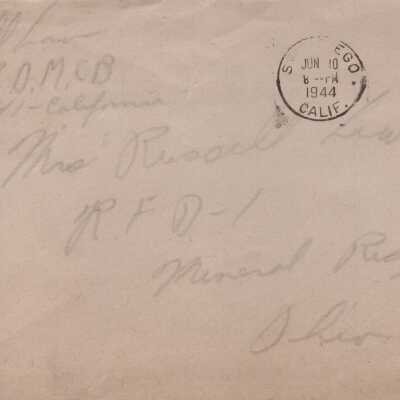 Law
D.M.CB
California
SAN DIEGO
JUN 10
8-PM
1944
CALIF.
Mrs Russell
R F D-1
Mineral
Ohio